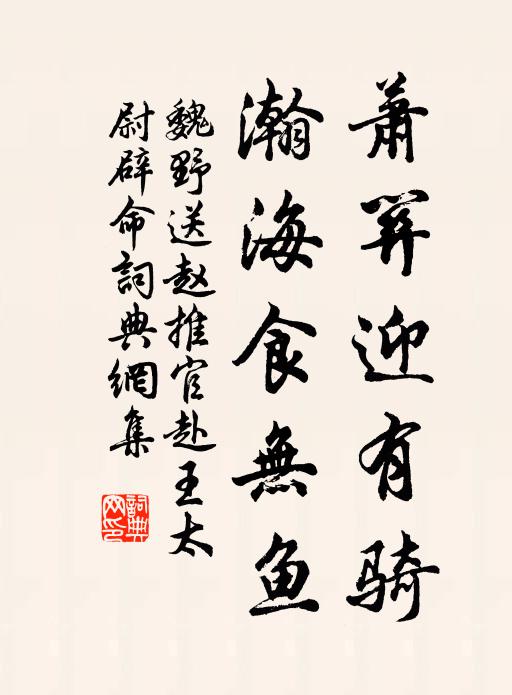 蕭關迎有骑
瀚海食無鱼
魏野送赵推官赴王太
尉辟命詞典網集
詞典网印